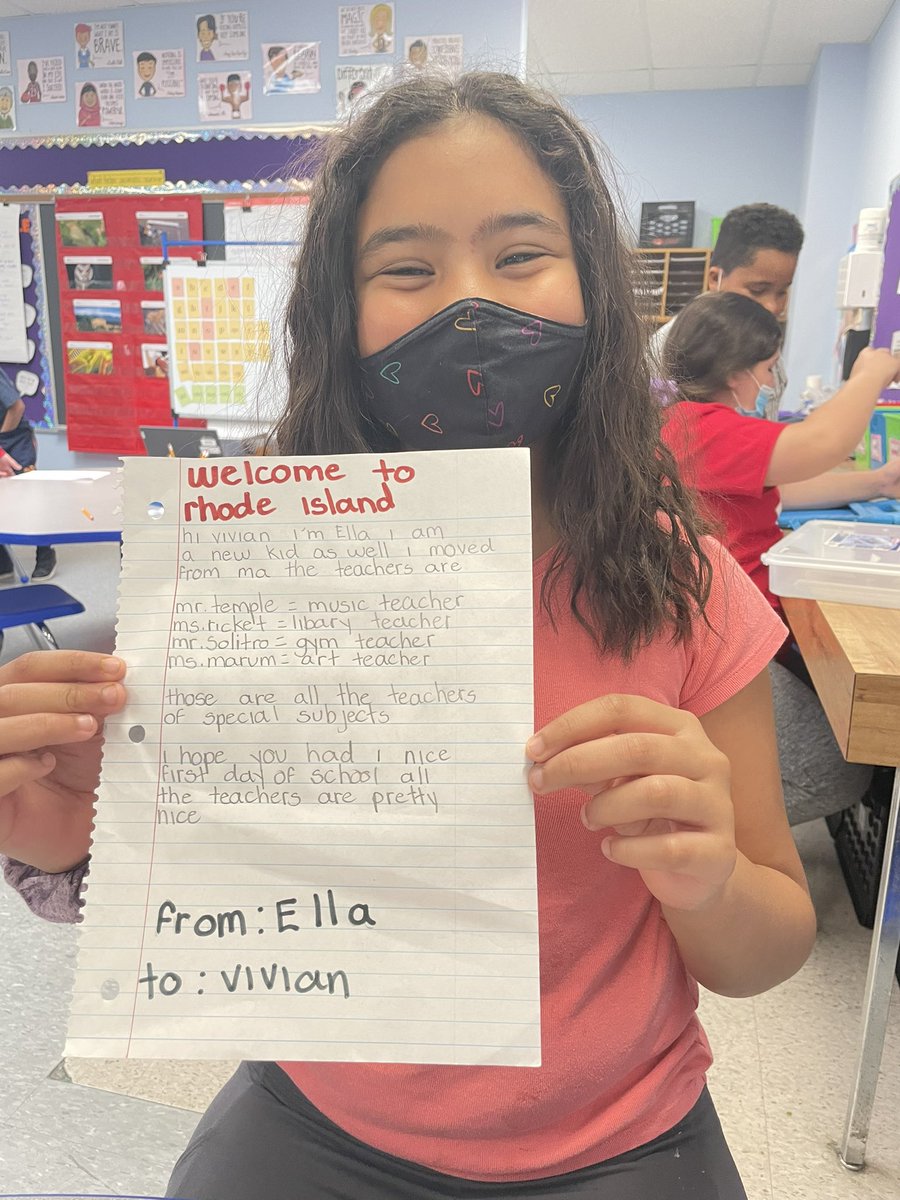 welcome to
rhode island
hi vivian i'm Ella i am
a new kid as well i moved
from ma the teachers are
mr.temple = music teacher
ms.rickelt = libary teacher
mr.solitro = gym teacher
ms.marum = art teacher
those are all the teachers
of special subjects
i hope you had i nice
first day of school all
the teachers are pretty
nice
from: Ella
to: vivian
BRAVE.
MAGIC